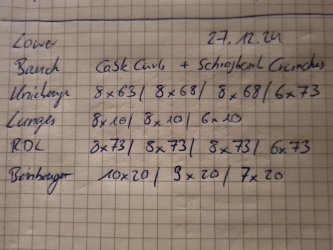 Lower 27.12.24
Bauch Cable Curls + Schrägbank Crunches
8x63 / 8x68 / 8x68 / 6x73
Lunges 8x10 / 8x10 / 6x10
RDL 8x73 / 8x73 / 8x73 / 6x73
Beinbeuger 10x20 / 9x20 / 7x20